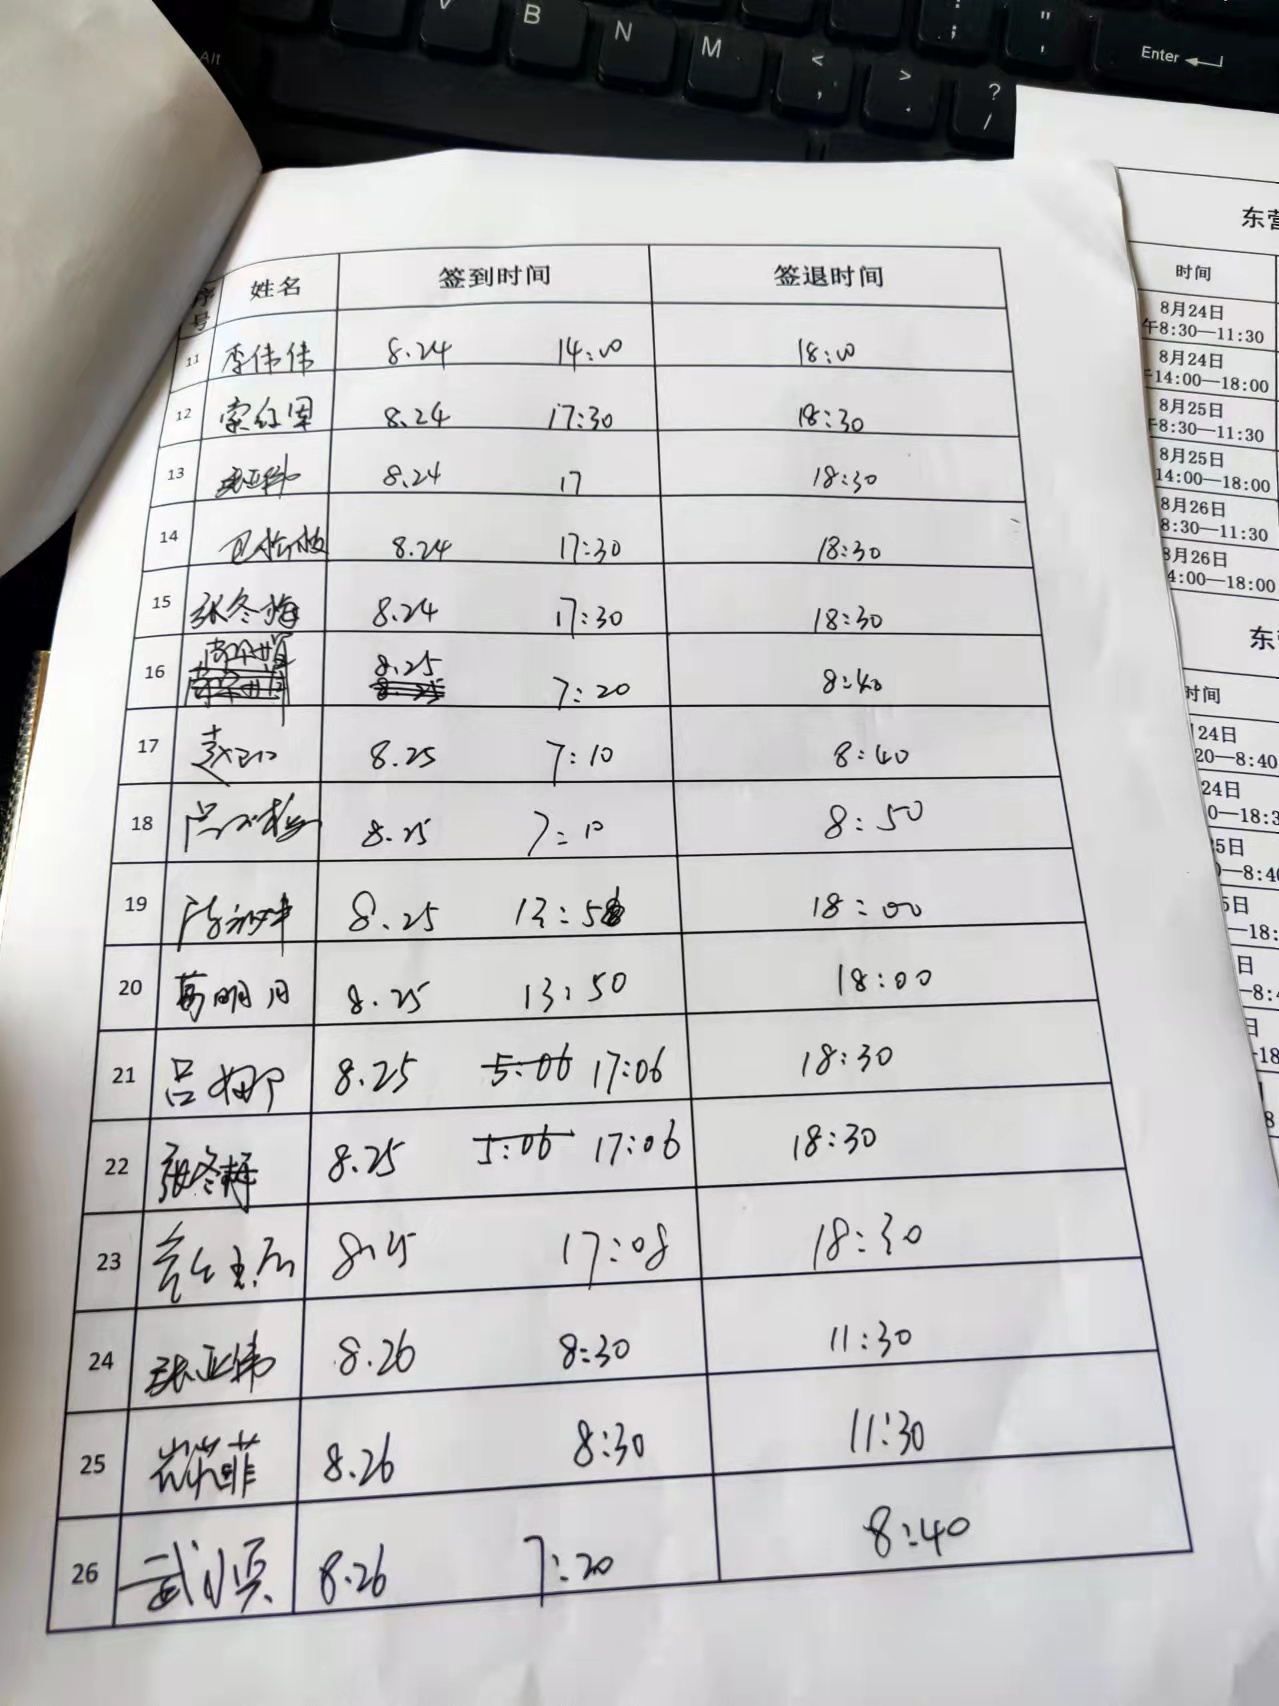 Alt
V
B
N
M
<
,
>
.
?
/
:
;
"
'
Enter
序号 姓名 签到时间 签退时间
11 李伟伟 8.24 14:00 18:00
12 8.24 17:30 18:30
13 张亚伟 8.24 17 18:30
14 8.24 17:30 18:30
15 张冬梅 8.24 17:30 18:30
16 8.25 7:20 8:40
17 8.25 7:10 8:40
18 8.25 7:10 8:50
19 8.25 13:58 18:00
20 葛明月 8.25 13:50 18:00
21 吕娜 8.25 5:06 17:06 18:30
22 张冬梅 8.25 5:06 17:06 18:30
23 8.25 17:08 18:30
24 张亚伟 8.26 8:30 11:30
25 8.26 8:30 11:30
26 8.26 7:20 8:40
东营
时间
8月24日
午8:30—11:30
8月24日
午14:00—18:00
8月25日
午8:30—11:30
8月25日
14:00—18:00
8月26日
8:30—11:30
8月26日
4:00—18:00
东
时间
24日
20—8:40
24日
0—18:3
5日
—8:40
5日
—18:
日
—8:4
日
-18